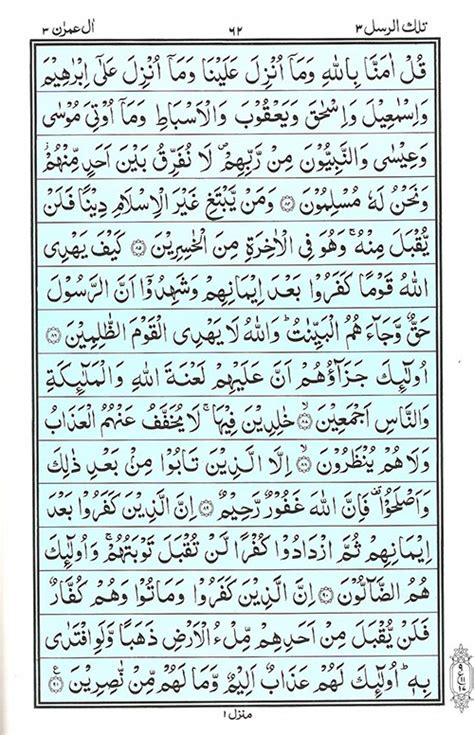 تلك الرسل ٣ ٦٢ اٰل عمرٰن ٣
قُلْ اٰمَنَّا بِاللّٰهِ وَمَآ اُنْزِلَ عَلَيْنَا وَمَآ اُنْزِلَ عَلٰٓى اِبْرٰهِيْمَ
وَاِسْمٰعِيْلَ وَاِسْحٰقَ وَيَعْقُوْبَ وَالْاَسْبَاطِ وَمَآ اُوْتِيَ مُوْسٰى
وَعِيْسٰى وَالنَّبِيُّوْنَ مِنْ رَّبِّهِمْ ۪ لَا نُفَرِّقُ بَيْنَ اَحَدٍ مِّنْهُمْ ۡ
وَنَحْنُ لَهٗ مُسْلِمُوْنَ ۝٨٤ وَمَنْ يَّبْتَغِ غَيْرَ الْاِسْلَامِ دِيْنًا فَلَنْ
يُّقْبَلَ مِنْهُ ۚ وَهُوَ فِي الْاٰخِرَةِ مِنَ الْخٰسِرِيْنَ ۝٨٥ كَيْفَ يَهْدِى
اللّٰهُ قَوْمًا كَفَرُوْا بَعْدَ اِيْمَانِهِمْ وَشَهِدُوْٓا اَنَّ الرَّسُوْلَ
حَقٌّ وَّجَآءَهُمُ الْبَيِّنٰتُ ؕ وَاللّٰهُ لَا يَهْدِى الْقَوْمَ الظّٰلِمِيْنَ ۝٨٦
اُولٰٓئِكَ جَزَآؤُهُمْ اَنَّ عَلَيْهِمْ لَعْنَةَ اللّٰهِ وَالْمَلٰٓئِكَةِ
وَالنَّاسِ اَجْمَعِيْنَ ۝٨٧ خٰلِدِيْنَ فِيْهَا ۚ لَا يُخَفَّفُ عَنْهُمُ الْعَذَابُ
وَلَا هُمْ يُنْظَرُوْنَ ۝٨٨ اِلَّا الَّذِيْنَ تَابُوْا مِنْۢ بَعْدِ ذٰلِكَ
وَاَصْلَحُوْا ۟ فَاِنَّ اللّٰهَ غَفُوْرٌ رَّحِيْمٌ ۝٨٩ اِنَّ الَّذِيْنَ كَفَرُوْا بَعْدَ
اِيْمَانِهِمْ ثُمَّ ازْدَادُوْا كُفْرًا لَّنْ تُقْبَلَ تَوْبَتُهُمْ ۚ وَاُولٰٓئِكَ
هُمُ الضَّآلُّوْنَ ۝٩٠ اِنَّ الَّذِيْنَ كَفَرُوْا وَمَاتُوْا وَهُمْ كُفَّارٌ
فَلَنْ يُّقْبَلَ مِنْ اَحَدِهِمْ مِّلْءُ الْاَرْضِ ذَهَبًا وَّلَوِ افْتَدٰى
بِهٖ ؕ اُولٰٓئِكَ لَهُمْ عَذَابٌ اَلِيْمٌ وَّمَا لَهُمْ مِّنْ نّٰصِرِيْنَ ۝٩١
منزل ١